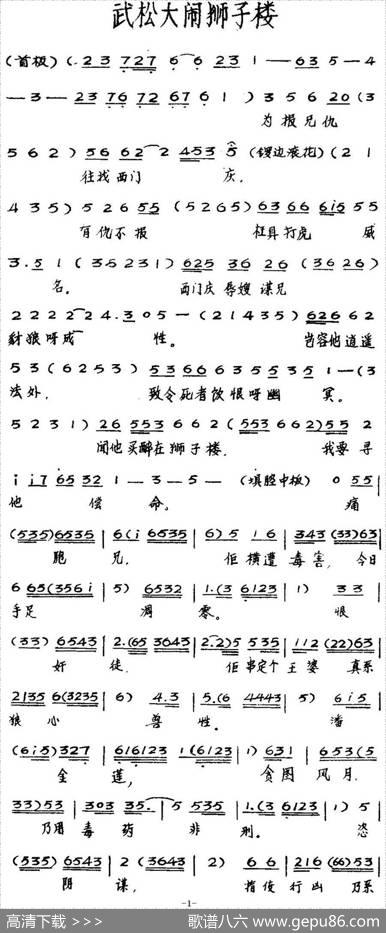 武松大闹狮子楼
(首板) (. 23 727 6 6 23 1 — 63 5 — 4
— 3 — 23 76 72 67 6 1 ) 3 5 6 20 (3
为 报 兄 仇
5 6 2 ) 56 62 2 453 5 (锣边滚花) (2 1
往找 西门 庆.
4 3 5 ) 5 2 6 55 (5265) 63 66 6i5 55
有仇不报 枉具打虎 威
3.5 1 (35231) 625 36 26 (3626)
名。 西门庆 辱嫂 谋兄
2 2 2 2 24.305 — (21435) 62662
豺狼呀成 性。 岂容他逍遥
53 (6253) 5366635535 1 — (3
法外. 致令死者饮恨呀幽 冥。
5 2 3 1) 26 553 6 6 2 (553 662) 55 2
闻他买醉在狮子楼. 我要寻
i i7 65 32 1 — 3 — 5 — (填腔中板) 0 55 |
他 偿 命。 痛
(535)6535 | 6(i 6535 | 6) 5 1 6 | 343 (33)63 |
胞 兄. 佢横遭 毒害, 今日
6 65(356i | 5) 6532 | 1.(3 6123 | 1) 33 |
手足 凋 零。 恨
(33) 6543 | 2.(65 3643 | 2.2)5 535 | 112 (22)63 |
奸 徒. 佢串定个 王婆 真系
2135 6(3235 | 6) 4.3 | 5.(6 4443 | 5) 6i5 |
狼心 兽 性。 潘
(6i5)327 | 616123 1(6123 | 1) 631 | 653(5
金 莲, 贪图 风月.
33)53 | 303 35. 5 535 | 1.(3 6123 | 1) 5 |
乃用 毒 药 非 刑。 恣
(535) 6543 | 2 (3643 | 2) 6 6 | 216 (66)53 |
阴 谋, 指使 行凶 乃系
-1-
高清下载 >>> 歌谱八六 www.gepu86.com